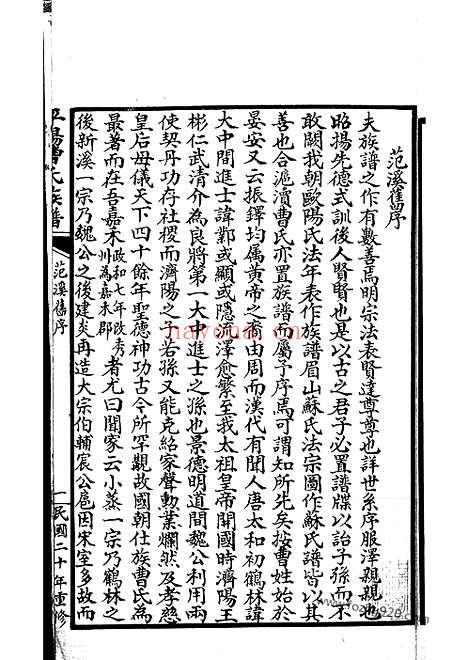 范溪舊序
夫族譜之作有數善焉明宗法表賢達尊尊也詳世系序服澤親親也
昭揚先德式訓後人賢賢也是以古之君子必置譜牒以詒子孫而不
敢闕我朝歐陽氏法年表作族譜眉山蘇氏法宗圖作蘇氏譜皆以其
善也合滬瀆曹氏亦置族譜而屬予序焉可謂知所先矣按曹姓始於
晏安又云振鐸均属黃帝之裔由周而漢代有聞人唐太和初鶴林諱
大中間進士諱鄴或顯或隱厥澤愈繁至我太祖皇帝開國時濟陽王
彬仁武清介為良將第一大中進士之孫也景德明道間魏公利用兩
使契丹功存社稷而濟陽之子若孫又能克紹家聲勳業爛然及孝慈
皇后母儀天下四十餘年聖德神功古今所罕觀故國朝仕族曹氏為
最著而在吾嘉禾政和七年改秀州為嘉禾郡者尤曰聞家云小蒸一宗乃鶴林之
後新溪一宗乃魏公之後建炎再造大宗伯輔宸公扈因宋室多故而
平陽曹氏族譜
范溪舊序
一
民國二十年重修
nayona.cn